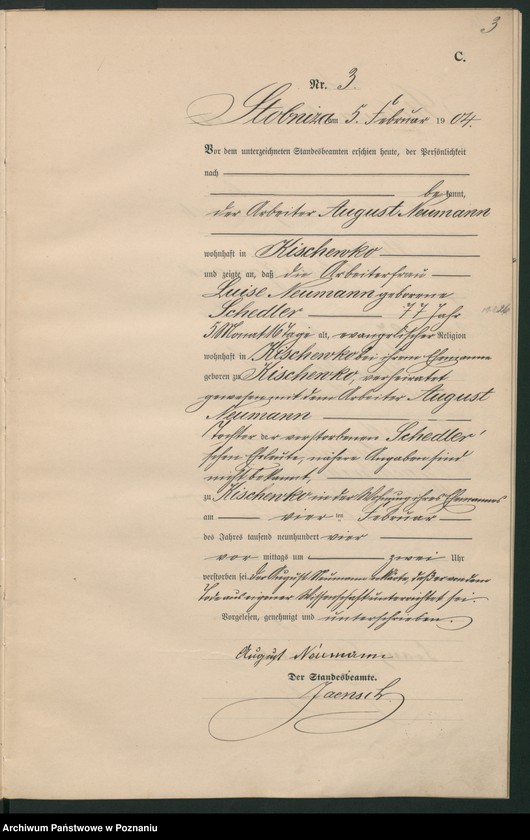 3
C.
Nr. 3.
Stobnica am 5. Februar 1904.
Vor dem unterzeichneten Standesbeamten erschien heute, der Persönlichkeit
nach
bekannt,
der Arbeiter August Neumann
wohnhaft in Kischewko
und zeigte an, daß die Arbeiterfrau
Luise Neumann geborene
Schedler 77 Jahr
5 Monat 16 Tage alt, evangelischer Religion
wohnhaft in Kischewko bei ihrem Ehemanne
geboren zu Kischewko, verheiratet
gewesen mit dem Arbeiter August
Neumann
Tochter der verstorbenen Schedler'
schen Eheleute, nähere Angaben sind
nicht bekannt,
zu Kischewko in der Wohnung ihres Ehemannes
am vier ten Februar
des Jahres tausend neunhundert vier
vor mittags um zwei Uhr
verstorben sei. Der August Neumann erklärte, daß er von dem
Tode aus eigener Wissenschaft unterrichtet sei.
Vorgelesen, genehmigt und unterschrieben.
August Neumann
Der Standesbeamte.
Jaensch
Archiwum Państwowe w Poznaniu